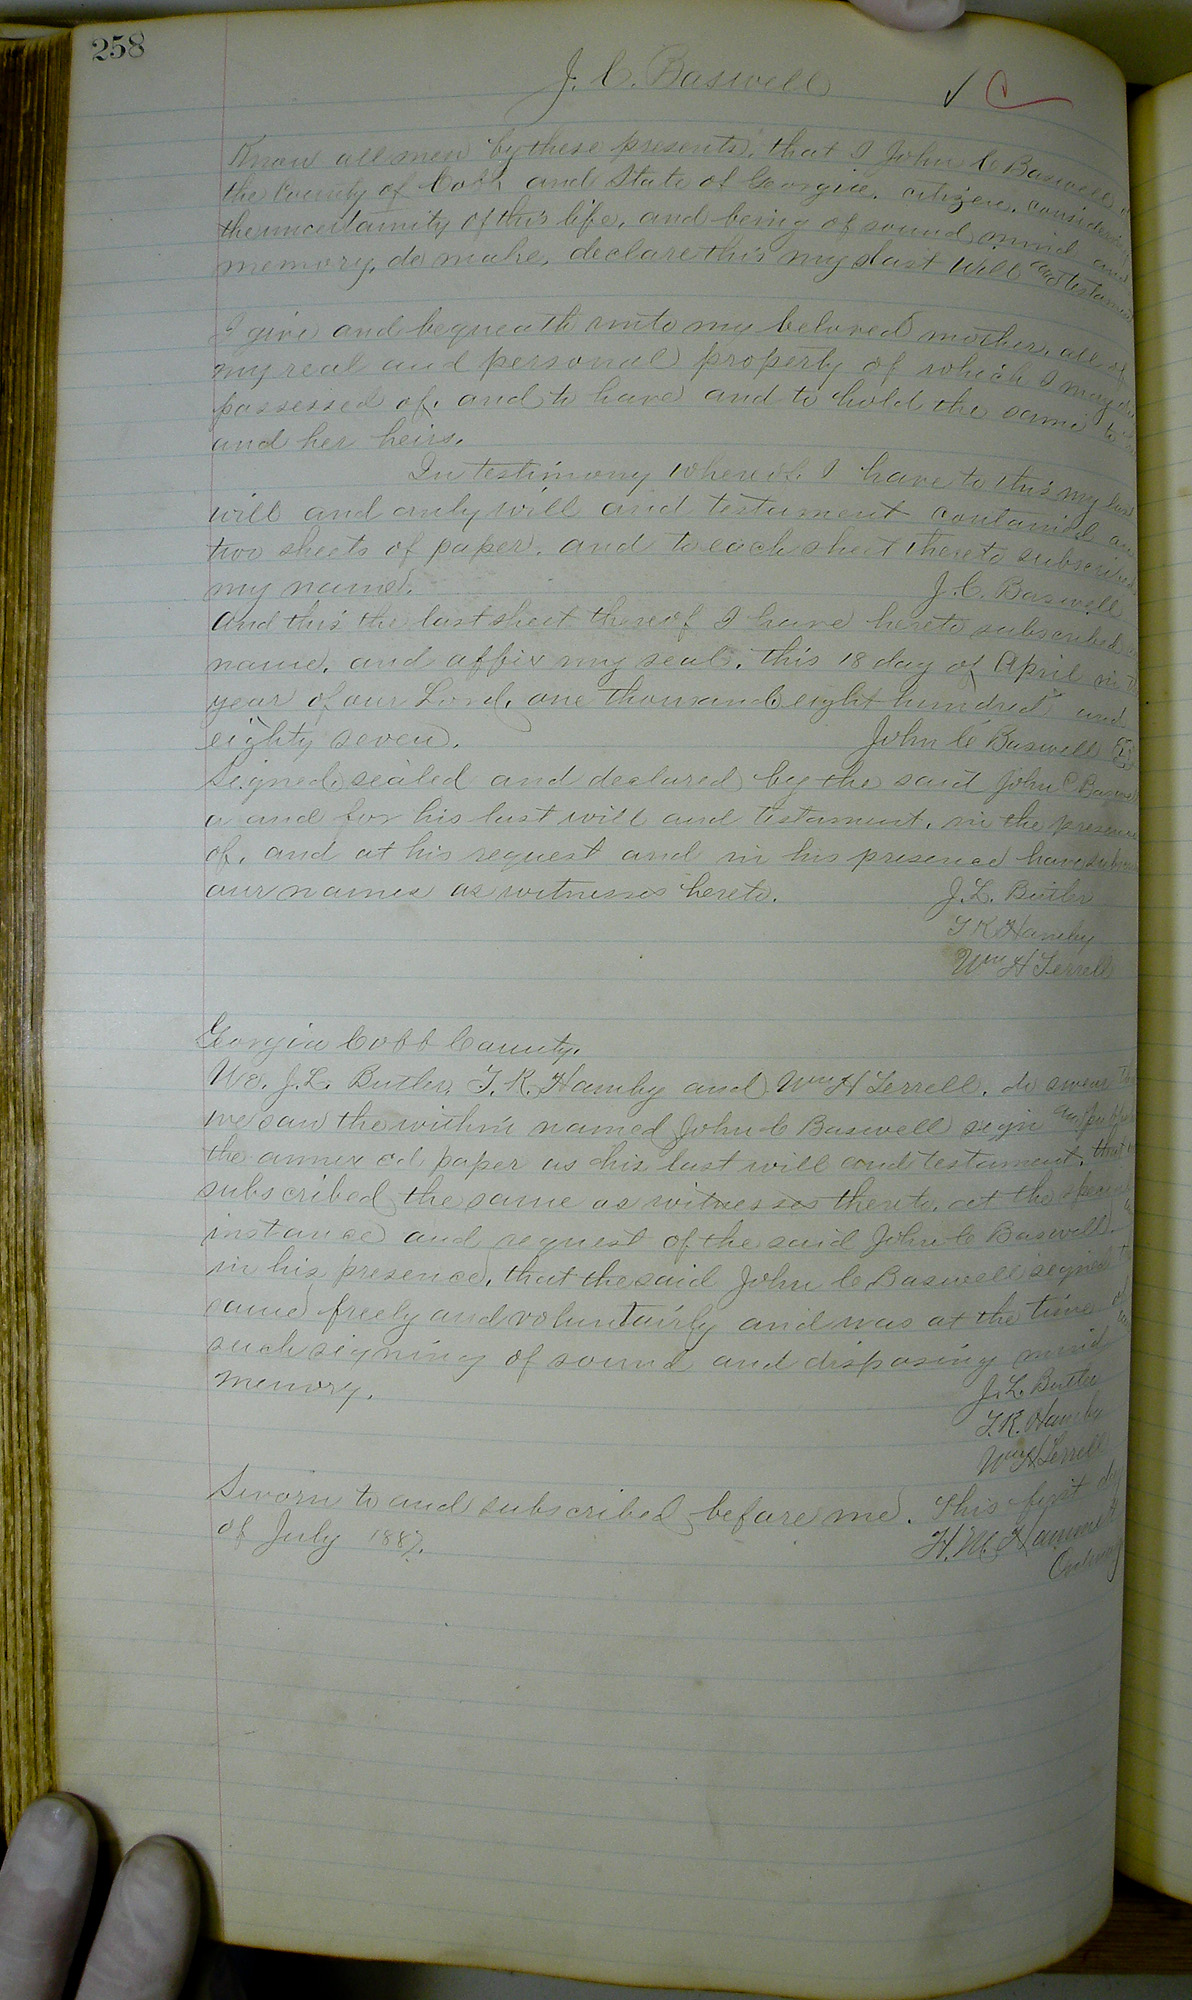 258
J. C. Baswell
Know all men by these presents, that I John C Baswell of
the County of Cobb, and State of Georgia, citizen, considering
the uncertainity of this life, and being of sound mind and
memory, do make, declare this my last Will and Testament
I give and bequeath unto my beloved mother, all of
my real and personal property of which I may die
possessed of, and to have and to hold the same to
and her heirs.
In testimony whereof, I have to this my last
will and only will and testament contained on
two sheets of paper, and to each sheet thereto subscribed
my name.
J. C. Baswell
And this the last sheet thereof I have hereto subscribed my
name, and affix my seal, this 18 day of April in the
year of our Lord, one thousand eight hundred and
eighty seven.
John C Baswell
Signed, sealed and declared by the said John C Baswell
a and for his last will and testament, in the presence
of, and at his request and in his presence have
our names as witnesses hereto.
J. L. Butler
T K Hamby
Wm H Terrell
Georgia Cobb County,
We, J. L. Butler, T. K. Hamby and Wm H Terrell, do swear
we saw the within named John C Baswell sign and
the annexed paper as his last will and testament, that
subscribed the same as witnesses thereto, at the
instance and request of the said John C Baswell
in his presence, that the said John C Baswell signed
same freely and voluntairly and was at the time of
such signing of sound and disposing mind
memory.
J. L. Butler
T. K. Hamby
Wm H Terrell
Sworn to and subscribed before me, This first day
of July 1887.
H. M. Hammett
Ordinary